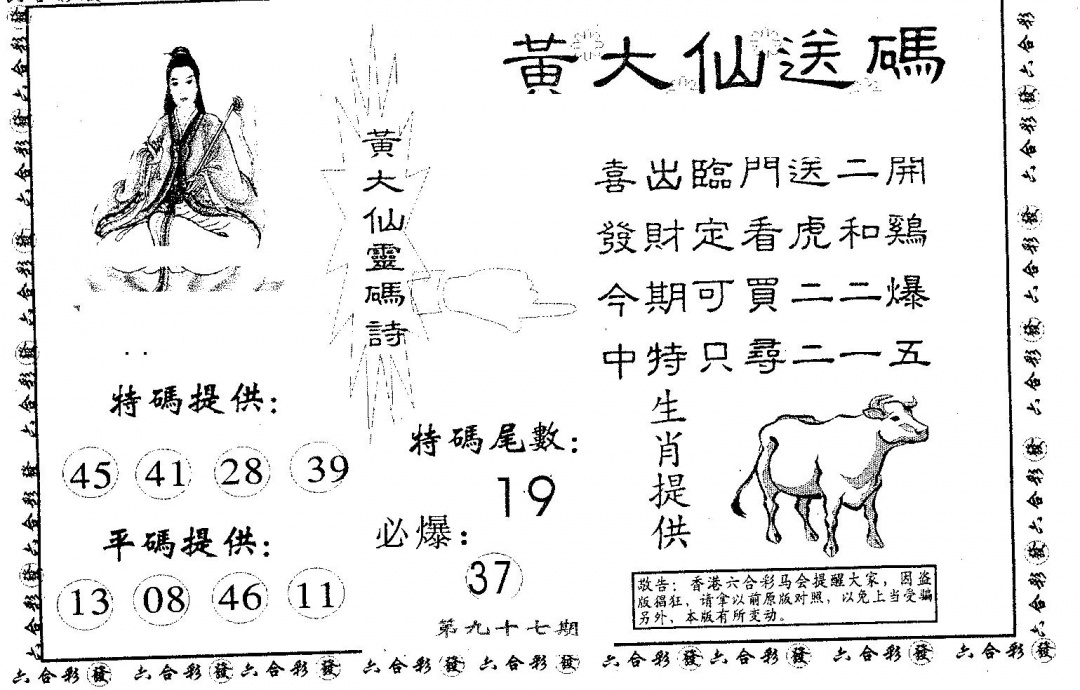 黃大仙送碼
黃大仙靈碼詩
喜出臨門送二開
發財定看虎和鷄
今期可買二二爆
中特只尋二一五
特碼提供：
45 41 28 39
平碼提供：
13 08 46 11
特碼尾數：
19
必爆：
37
第九十七期
生肖提供
敬告：香港六合彩马会提醒大家，因盗
版猖狂，请拿以前原版对照，以免上当受骗
另外，本版有所变动。
六合彩發六合彩發六合彩發六合彩發六合彩發六合彩發六合彩發六合彩發